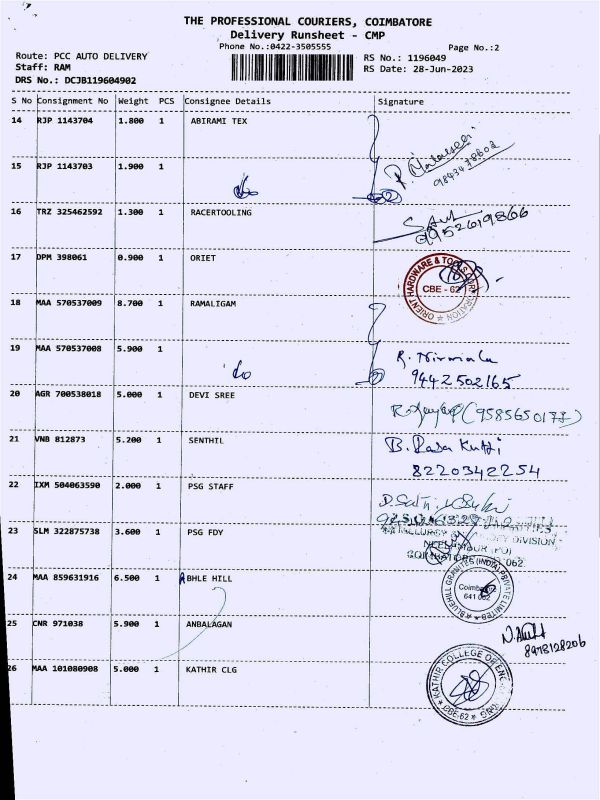 THE PROFESSIONAL COURIERS, COIMBATORE
Delivery Runsheet - CMP
Phone No.:0422-3505555
Page No.:2
Route: PCC AUTO DELIVERY
RS No.: 1196049
Staff: RAM
RS Date: 28-Jun-2023
DRS No.: DCJB119604902
S No Consignment No Weight PCS Consignee Details Signature
14 RJP 1143704 1.800 1 ABIRAMI TEX
9843478602
15 RJP 1143703 1.900 1
do
16 TRZ 325462592 1.300 1 RACERTOOLING
9952619866
17 DPM 398061 0.900 1 ORIET
ORIENT HARDWARE & TOOLS CORPORATION
CBE - 62
18 MAA 570537009 8.700 1 RAMALIGAM
19 MAA 570537008 5.900 1
do
R. Nirmala
9442502165
20 AGR 700538018 5.000 1 DEVI SREE
(9585650177)
21 VNB 812873 5.200 1 SENTHIL
B. Rasa Kutti
8220342254
22 IXM 504063590 2.000 1 PSG STAFF
23 SLM 322875738 3.600 1 PSG FDY
DIVISION
(PO)
062
24 MAA 859631916 6.500 1 BHLE HILL
BLUEHILL GRANITES (INDIA) PRIVATE LIMITED
Coimbatore
641 062
25 CNR 971038 5.900 1 ANBALAGAN
8978128206
26 MAA 101080908 5.000 1 KATHIR CLG
KATHIR COLLEGE OF ENGG
CBE-62